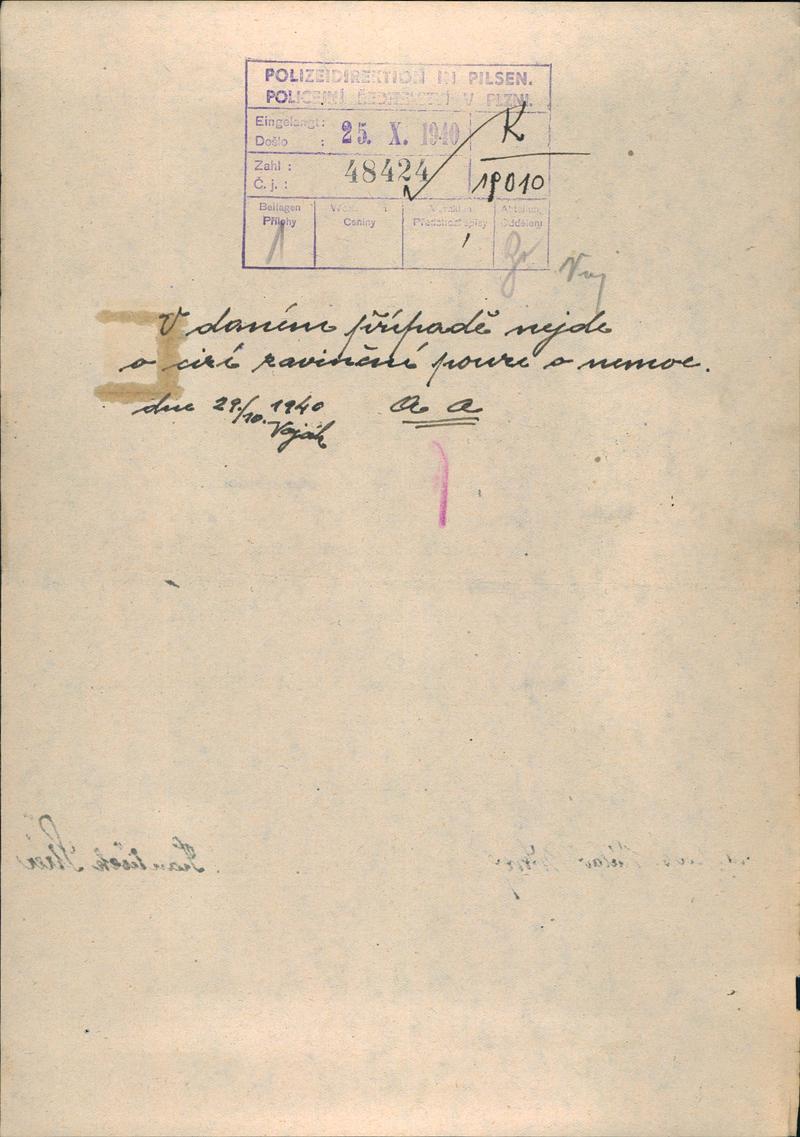 POLIZEIDIREKTION IN PILSEN.
POLICEJNÍ ŘEDITELSTVÍ V PLZNI.
Eingelangt:
Došlo :
25. X. 1940
K
19010
Zahl :
Č. j. :
48424
Beilagen
Přílohy
Ceniny
Předchozí spisy
Abteilung
Oddělení
1
V daném případě nejde
o cizí zavinění pouze o nemoc.
dne 29./10. 1940 a a
Voják
František